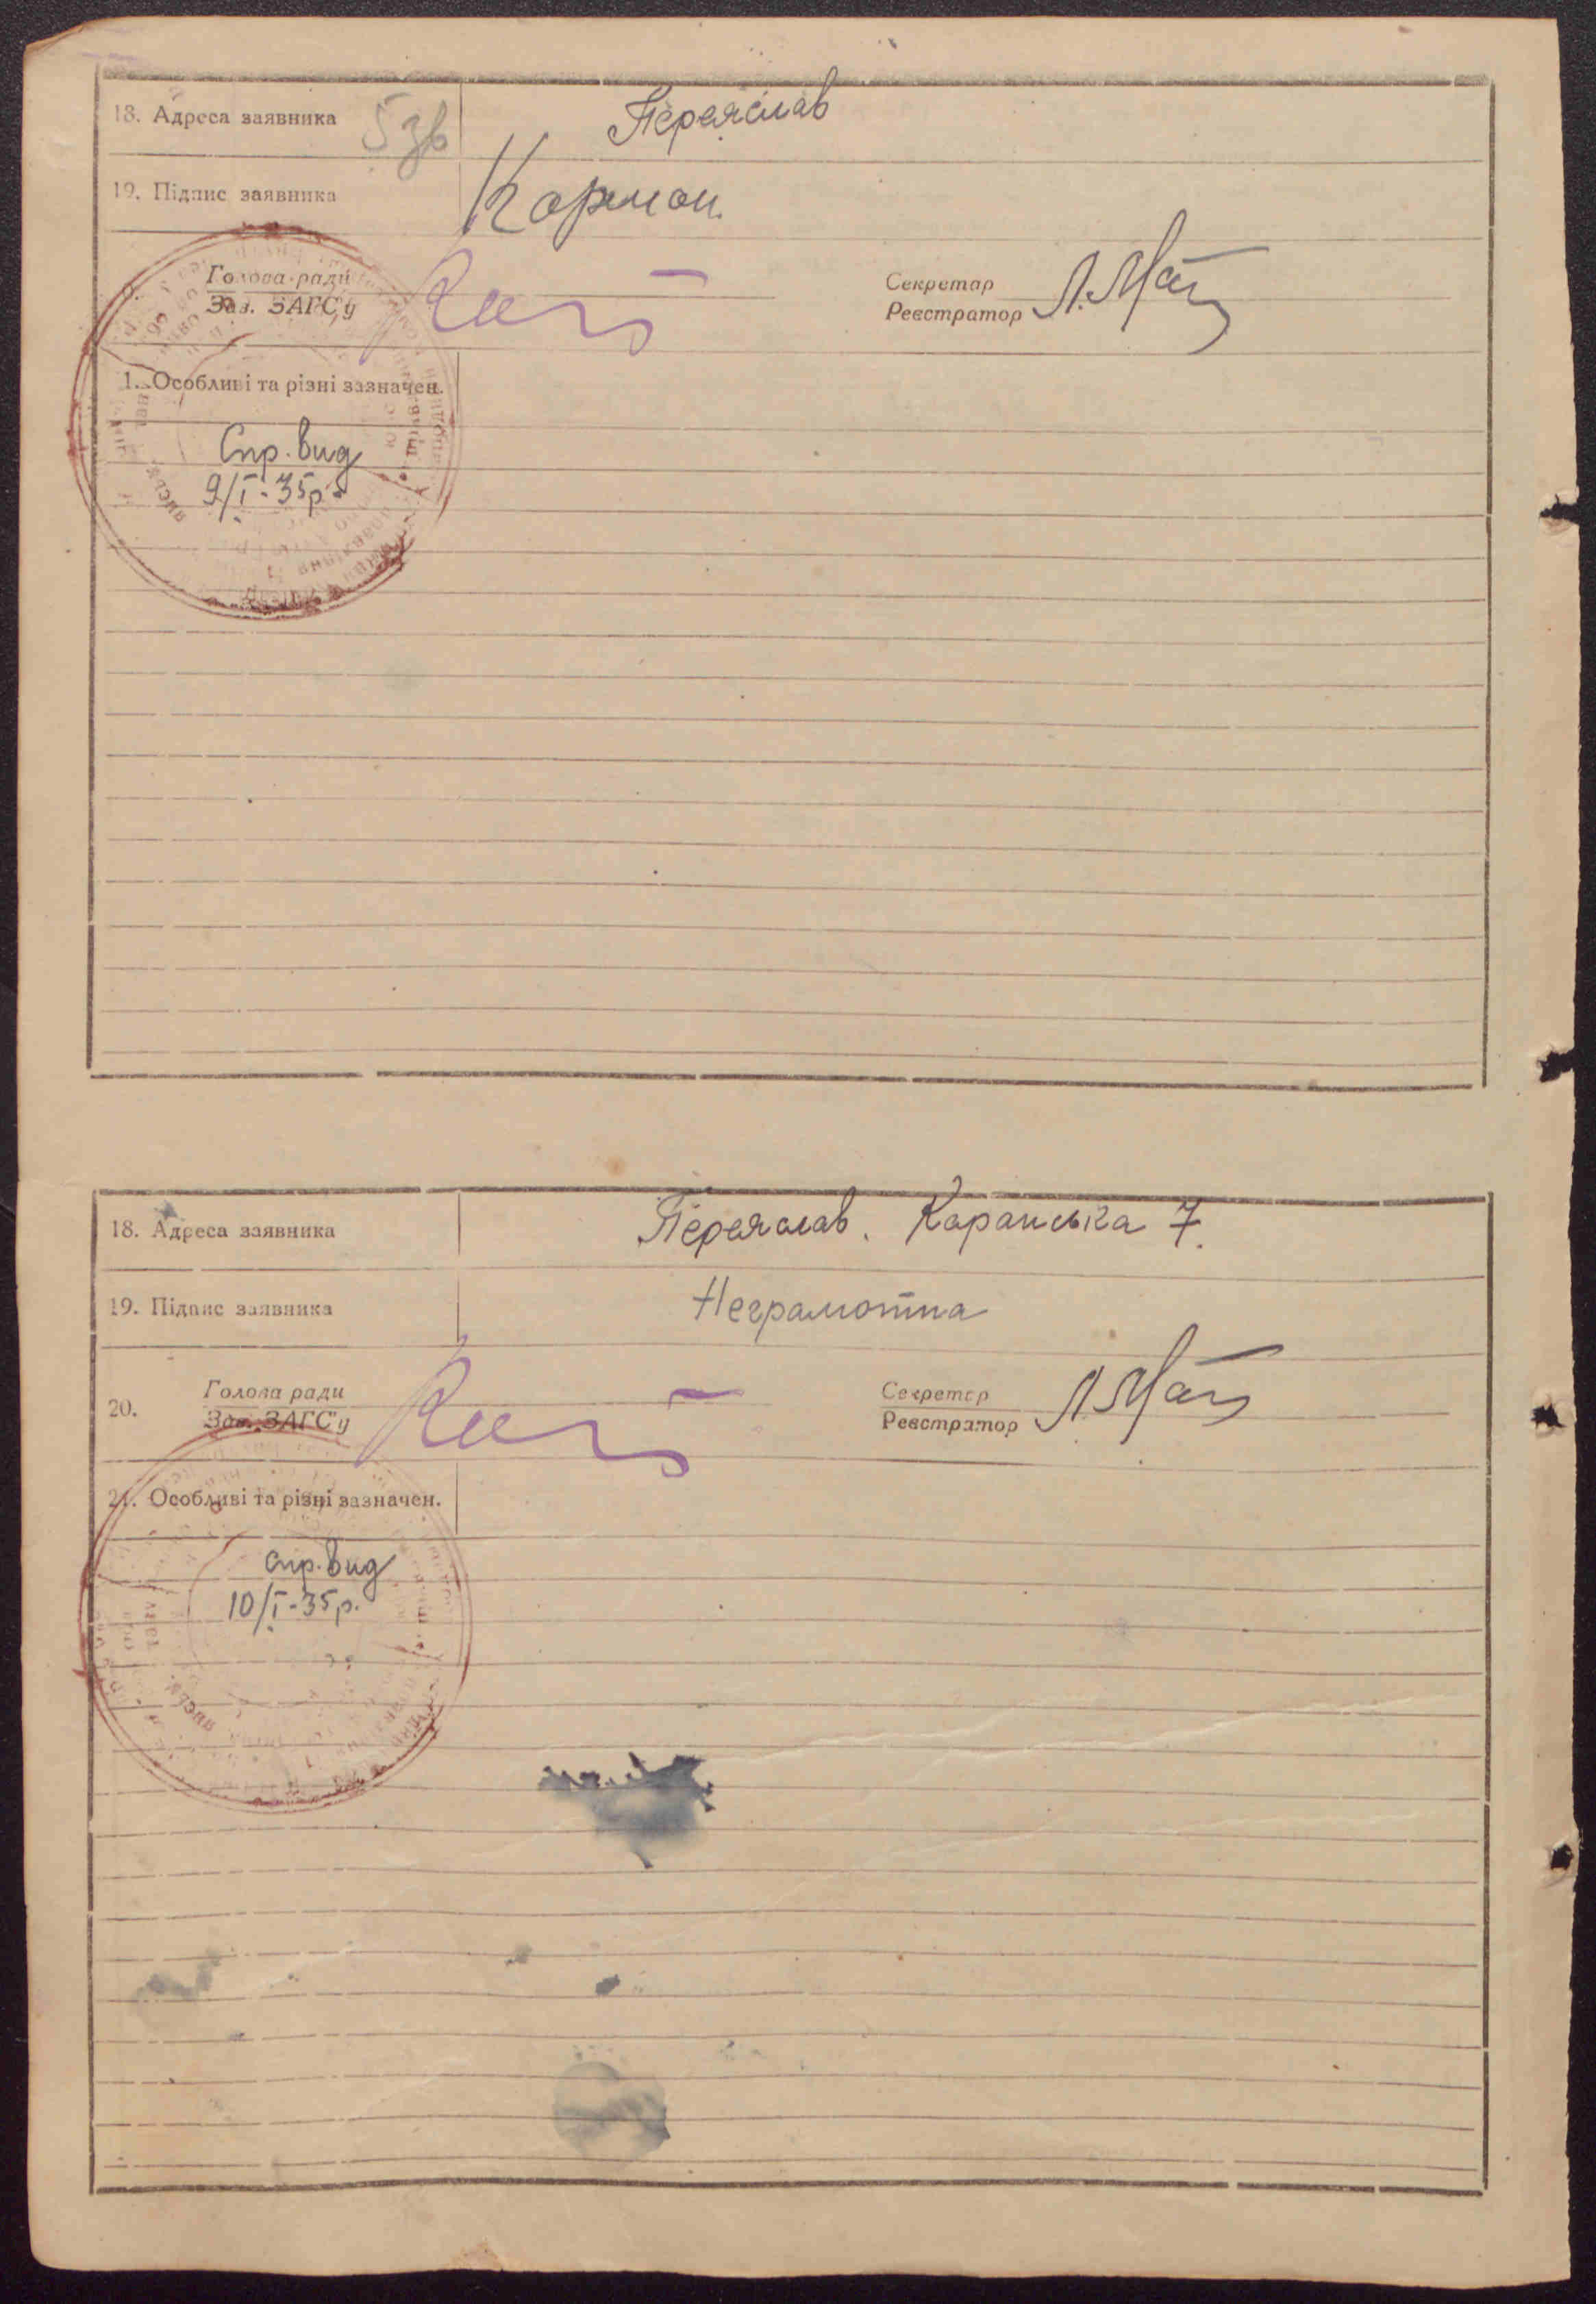 18. Адреса заявника 5 зв Переяслав
19. Підпис заявника Корман
Голова ради
Зав. ЗАГС'у
Секретар
Реєстратор
1. Особливі та різні зазначен.
Спр. вид
9/I-35р.
18. Адреса заявника Переяслав. Каранська 7.
19. Підпис заявника Неграмотна
20. Голова ради
Зав. ЗАГС'у
Секретар
Реєстратор
21. Особливі та різні зазначен.
Спр. вид
10/I-35р.